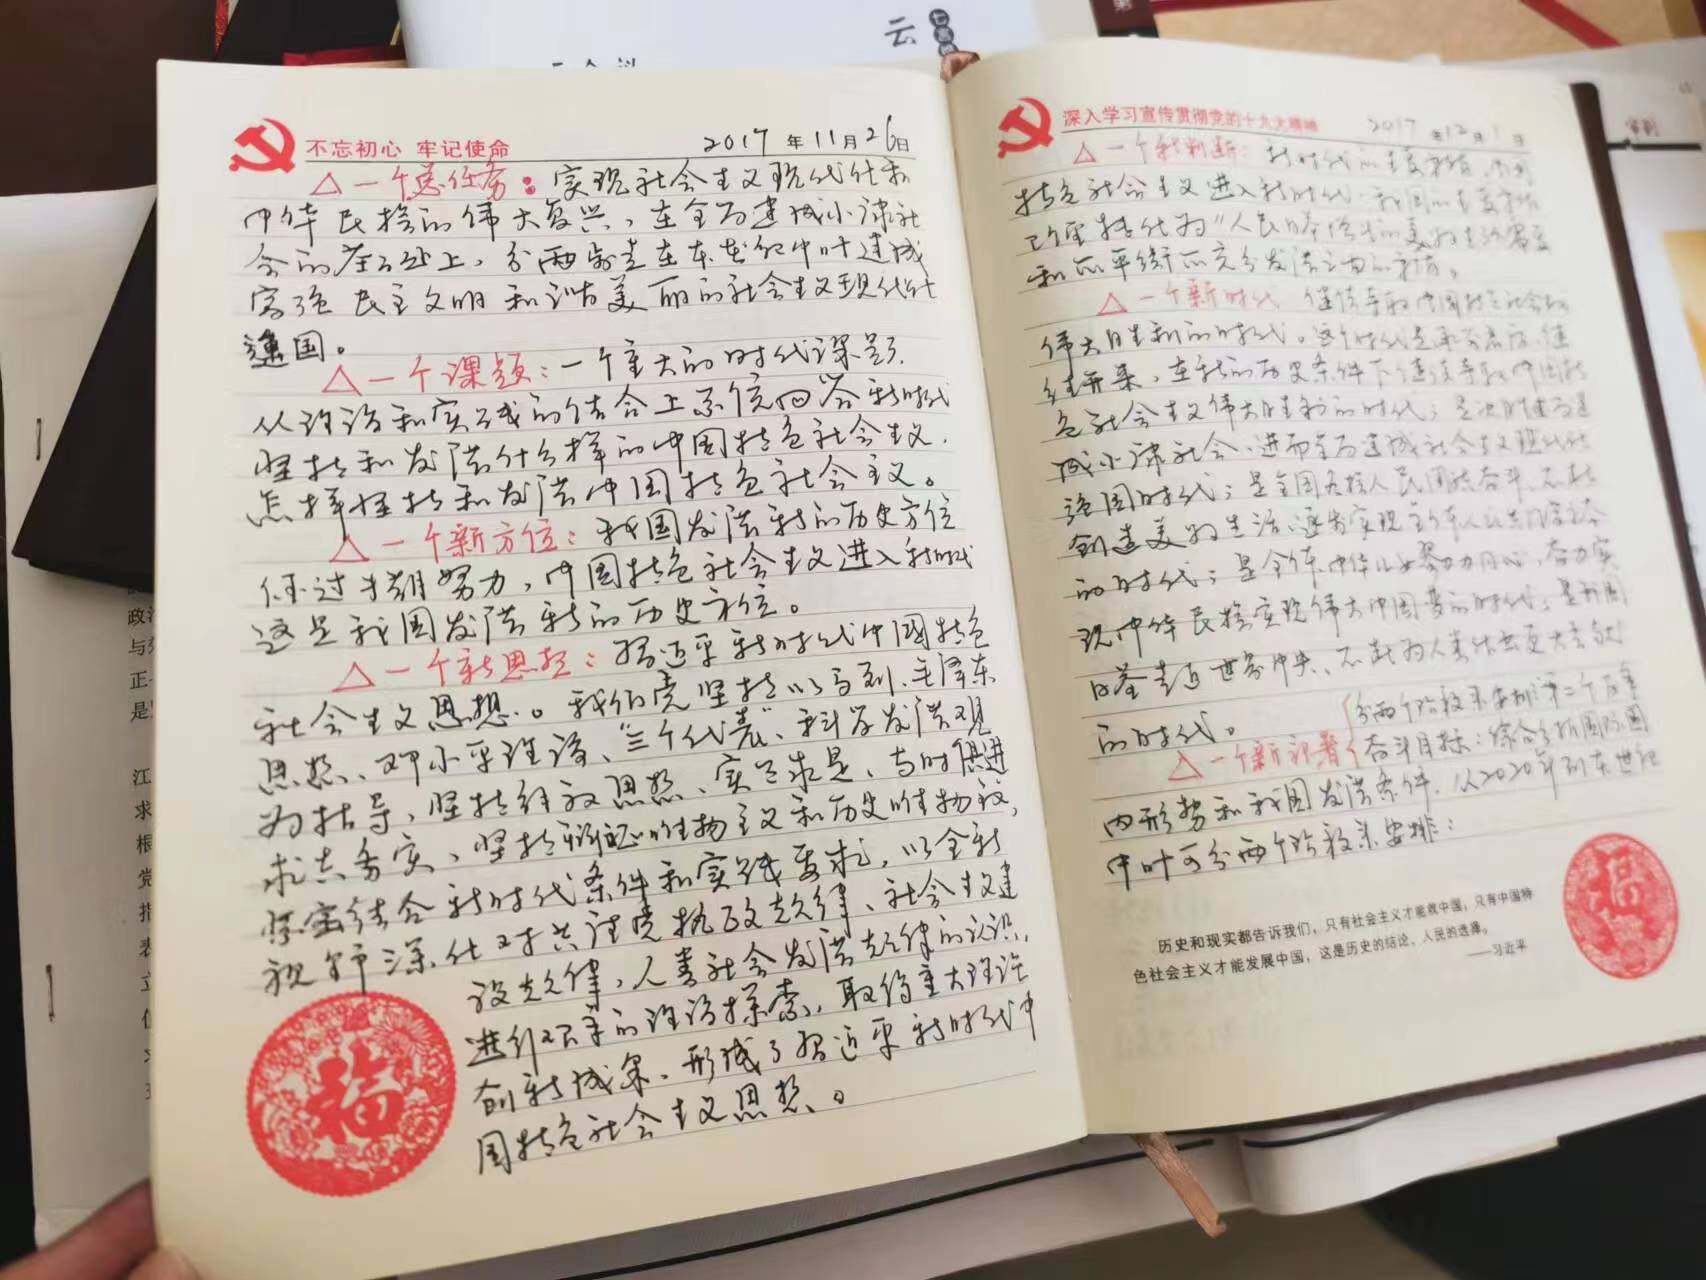 云
不忘初心 牢记使命
2017年11月26日
△一个总任务：实现社会主义现代化和
中华民族的伟大复兴，在全面建成小康社
会的基础上，分两步走在本世纪中叶建成
富强民主文明和谐美丽的社会主义现代化
强国。
△一个课题：一个重大的时代课题，
从理论和实践的结合上系统回答新时代
坚持和发展什么样的中国特色社会主义，
怎样坚持和发展中国特色社会主义。
△一个新方位：我国发展新的历史方位
经过长期努力，中国特色社会主义进入新时代
这是我国发展新的历史方位。
△一个新思想：习近平新时代中国特色
社会主义思想。我们党坚持以马列、毛泽东
思想、邓小平理论、“三个代表”、科学发展观
为指导，坚持解放思想、实事求是、与时俱进
求真务实，坚持辩证唯物主义和历史唯物主义，
紧密结合新时代条件和实践要求，以全新
视野深化对共产党执政规律、社会主义建
设规律、人类社会发展规律的认识，
进行艰辛的理论探索，取得重大理论
创新成果，形成了习近平新时代中
国特色社会主义思想。
深入学习宣传贯彻党的十九大精神
2017年12月1日
△一个新判断：新时代的主要矛盾，中国
特色社会主义进入新时代，我国的主要矛盾
已经转化为“人民日益增长的美好生活需要
和不平衡不充分发展之间的矛盾。
△一个新时代 继续夺取中国特色社会主义
伟大胜利的时代。这个时代是承前启后、继
往开来，在新的历史条件下继续夺取中国特
色社会主义伟大胜利的时代；是决胜全面建
成小康社会、进而全面建成社会主义现代化
强国时代；是全国各族人民团结奋斗、不断
创造美好生活、逐步实现全体人民共同富裕
的时代；是全体中华儿女勠力同心，奋力实
现中华民族实现伟大中国梦的时代；是我国
日益走近世界中央、不断为人类作出更大贡献
的时代。
分两个阶段来安排第二个百年
△一个新部署 奋斗目标：综合分析国际国
内形势和我国发展条件，从2020年到本世纪
中叶可分两个阶段来安排：
历史和现实都告诉我们，只有社会主义才能救中国，只有中国特
色社会主义才能发展中国，这是历史的结论、人民的选择。
——习近平
福
福